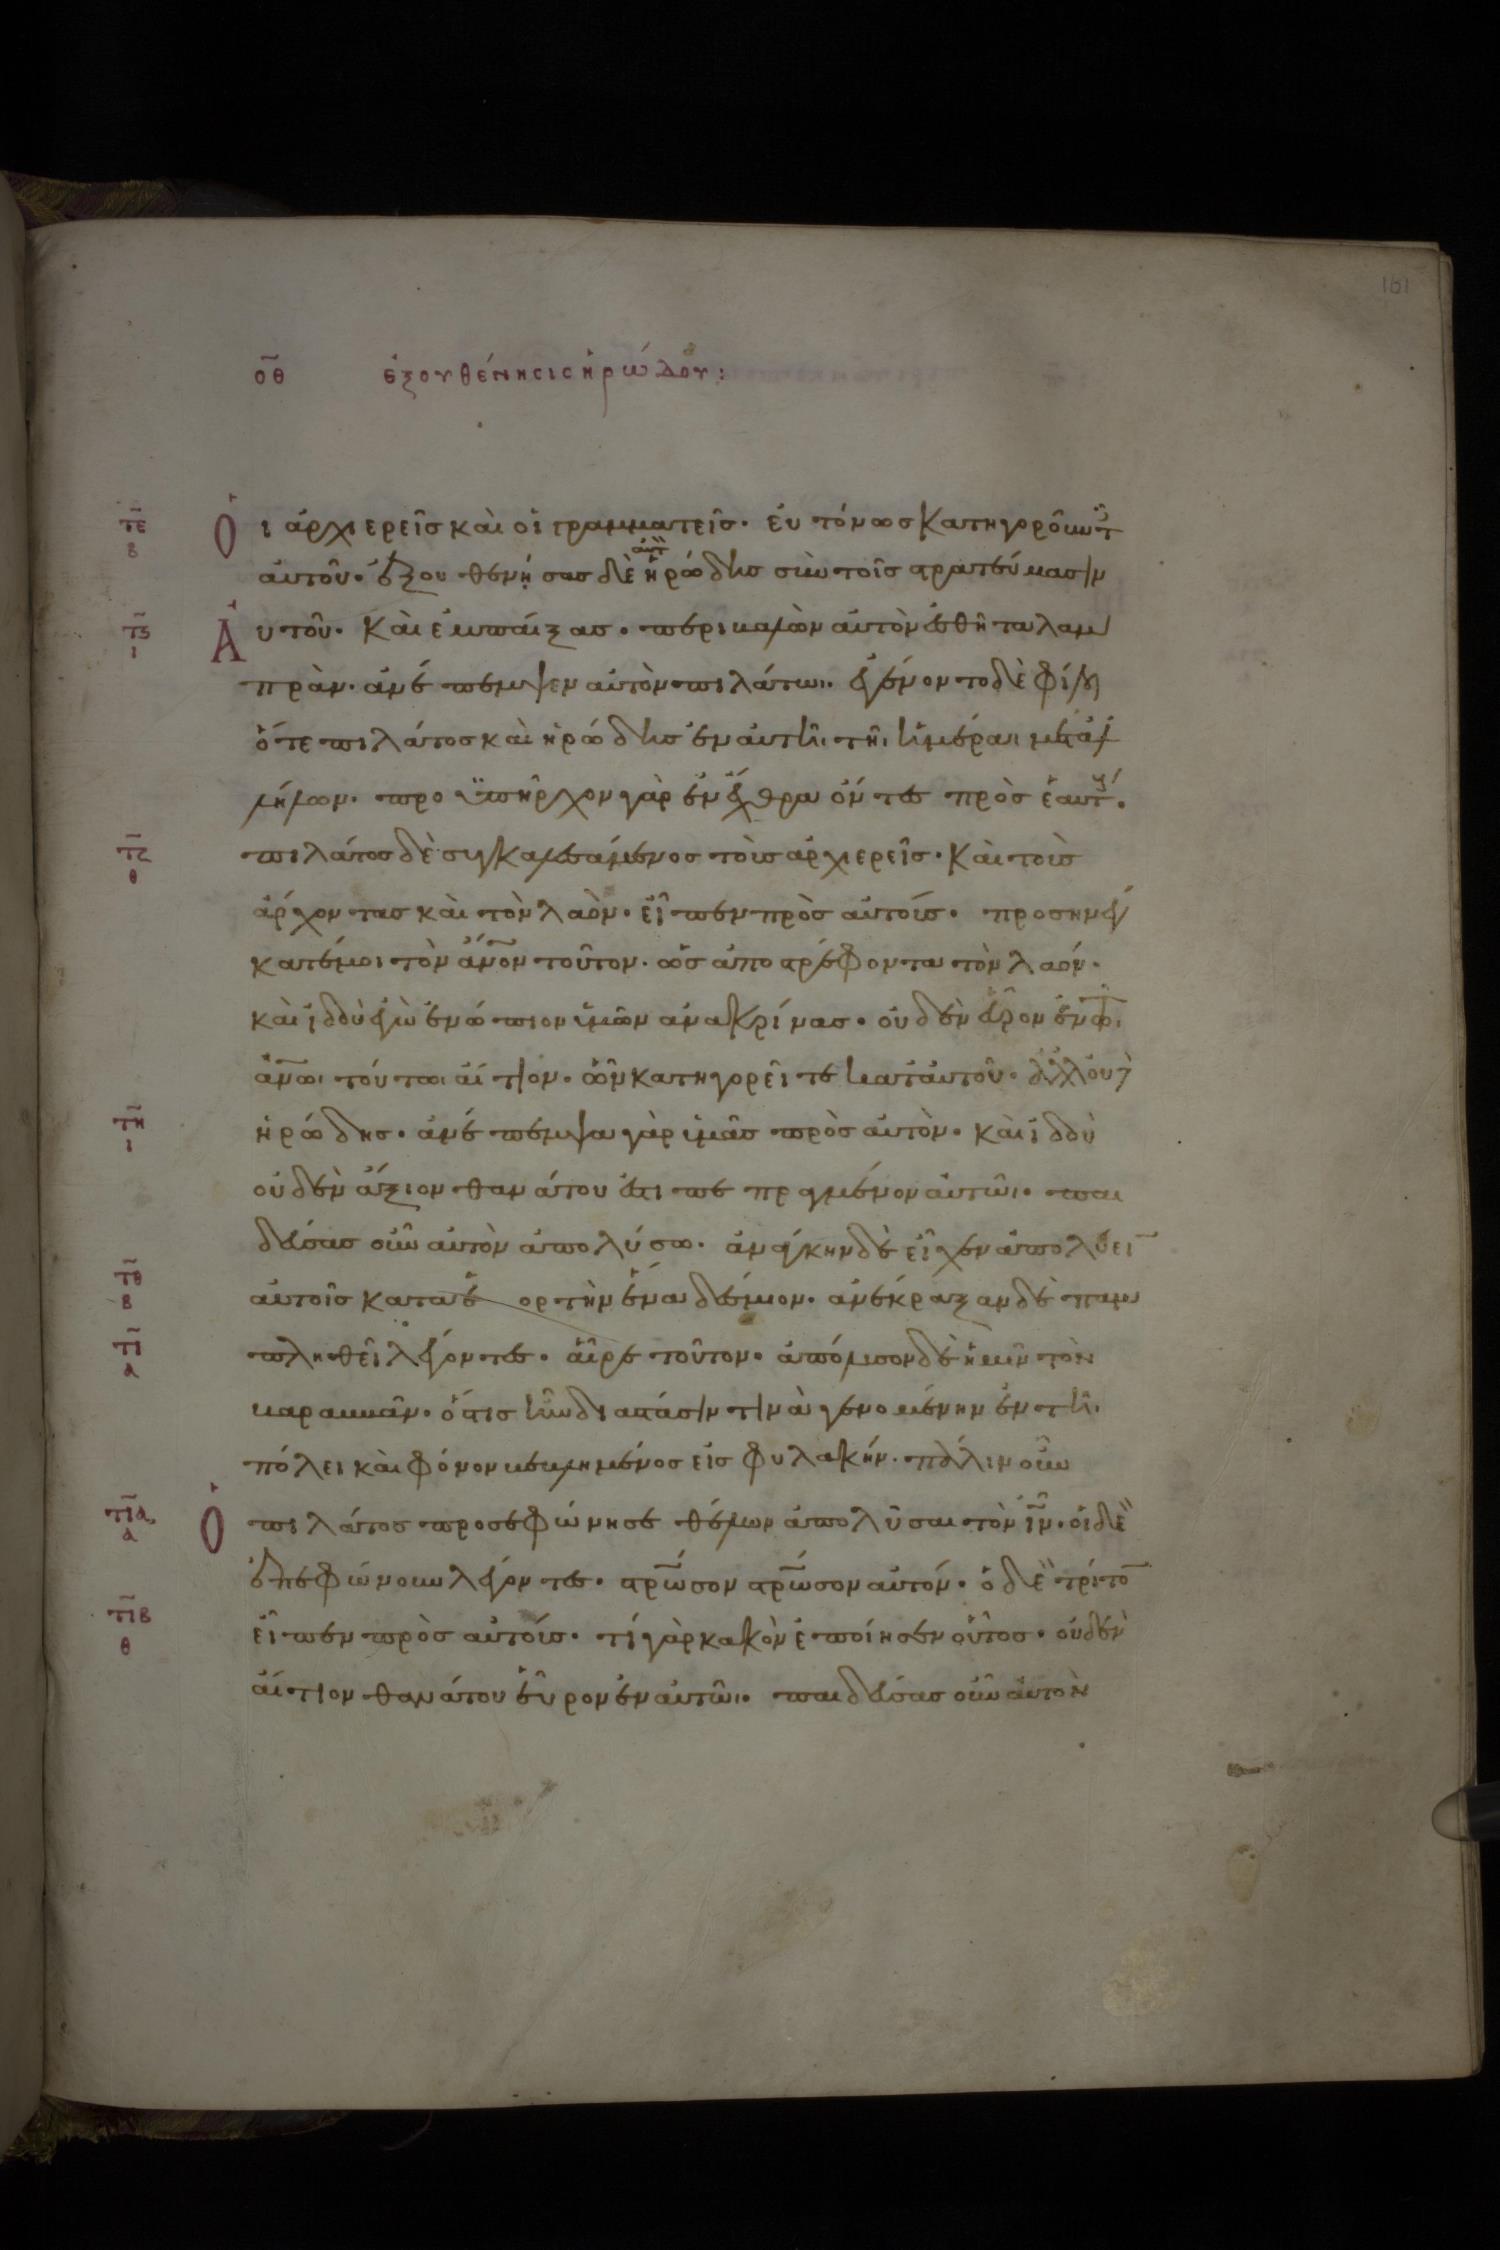 161
οθ ἐξουθένησις ἡρώδου:
τε β Οἱ ἀρχιερεῖς καὶ οἱ γραμματεῖς. εὐτόνως κατηγοροῦντες
αὐτοῦ. ἐξουθενήσας δὲ αὐτὸν ἡρώδης σὺν τοῖς στρατεύμασιν
τς ι Αὐτοῦ. καὶ ἐμπαίξας. περιβαλὼν αὐτὸν ἐσθῆτα λαμ
πρὰν. ἀνέπεμψεν αὐτὸν πιλάτωι. ἐγένοντο δὲ φίλοι
ὅτε πιλάτος καὶ ἡρώδης ἐν αὐτῆι τῆι ἡμέραι μετἀλ
λήλων. προϋπῆρχον γὰρ ἐν ἔχθρα ὄντες πρὸς ἑαυτούς.
τζ θ πιλάτος δὲ συγκαλεσάμενος τοὺς ἀρχιερεῖς. καὶ τοὺς
ἄρχοντας καὶ τὸν λαὸν. εἶπεν πρὸς αὐτούς. προσηνέγ
κατέ μοι τὸν ἄνον τοῦτον. ὡς ἀποστρέφοντα τὸν λαόν.
καὶ ἰδοὺ ἐγὼ ἐνώπιον ὑμῶν ἀνακρίνας. οὐδὲν εὗρον ἐν τῶ
ἀνωι τούτωι αἴτιον. ὧν κατηγορεῖτε κατ αὐτοῦ. ἀλλ οὐδὲ
τη ι ἡρώδης. ἀνέπεμψα γὰρ ὑμᾶς πρὸς αὐτὸν. καὶ ἰδοὺ
οὐδὲν ἄξιον θανάτου ἐστι πεπραγμένον αὐτῶι. παι
δεύσας οὖν αὐτὸν ἀπολύσω. ἀνάγκην δὲ εἶχεν ἀπολύειν
τθ β αὐτοῖς κατα ἑορτὴν ἕνα δέσμιον. ἀνέκραξαν δὲ παμ
τι α πληθεῖ λέγοντες. αἶρε τοῦτον. ἀπόλυσον δὲ ἡμῖν τὸν
βαραββᾶν. ὅστις ἦν διὰ στάσιν τινὰ γενομένην ἐν τῆι
πόλει καὶ φόνον βεβλημένος εἰς φυλακήν. πάλιν οὖν
τια α Ὁ πιλάτος προσεφώνησε θέλων ἀπολῦσαι τὸν ιν. οἱ δὲ
ἐπεφώνουν λέγοντες. στρωσον στρωσον αὐτόν. ὁ δὲ τρίτον
τιβ θ εἶπεν πρὸς αὐτούς. τί γὰρ κακὸν ἐποίησεν οὗτος. οὐδὲν
αἴτιον θανάτου εὗρον ἐν αὐτῶι. παιδεύσας οὖν αὐτὸν